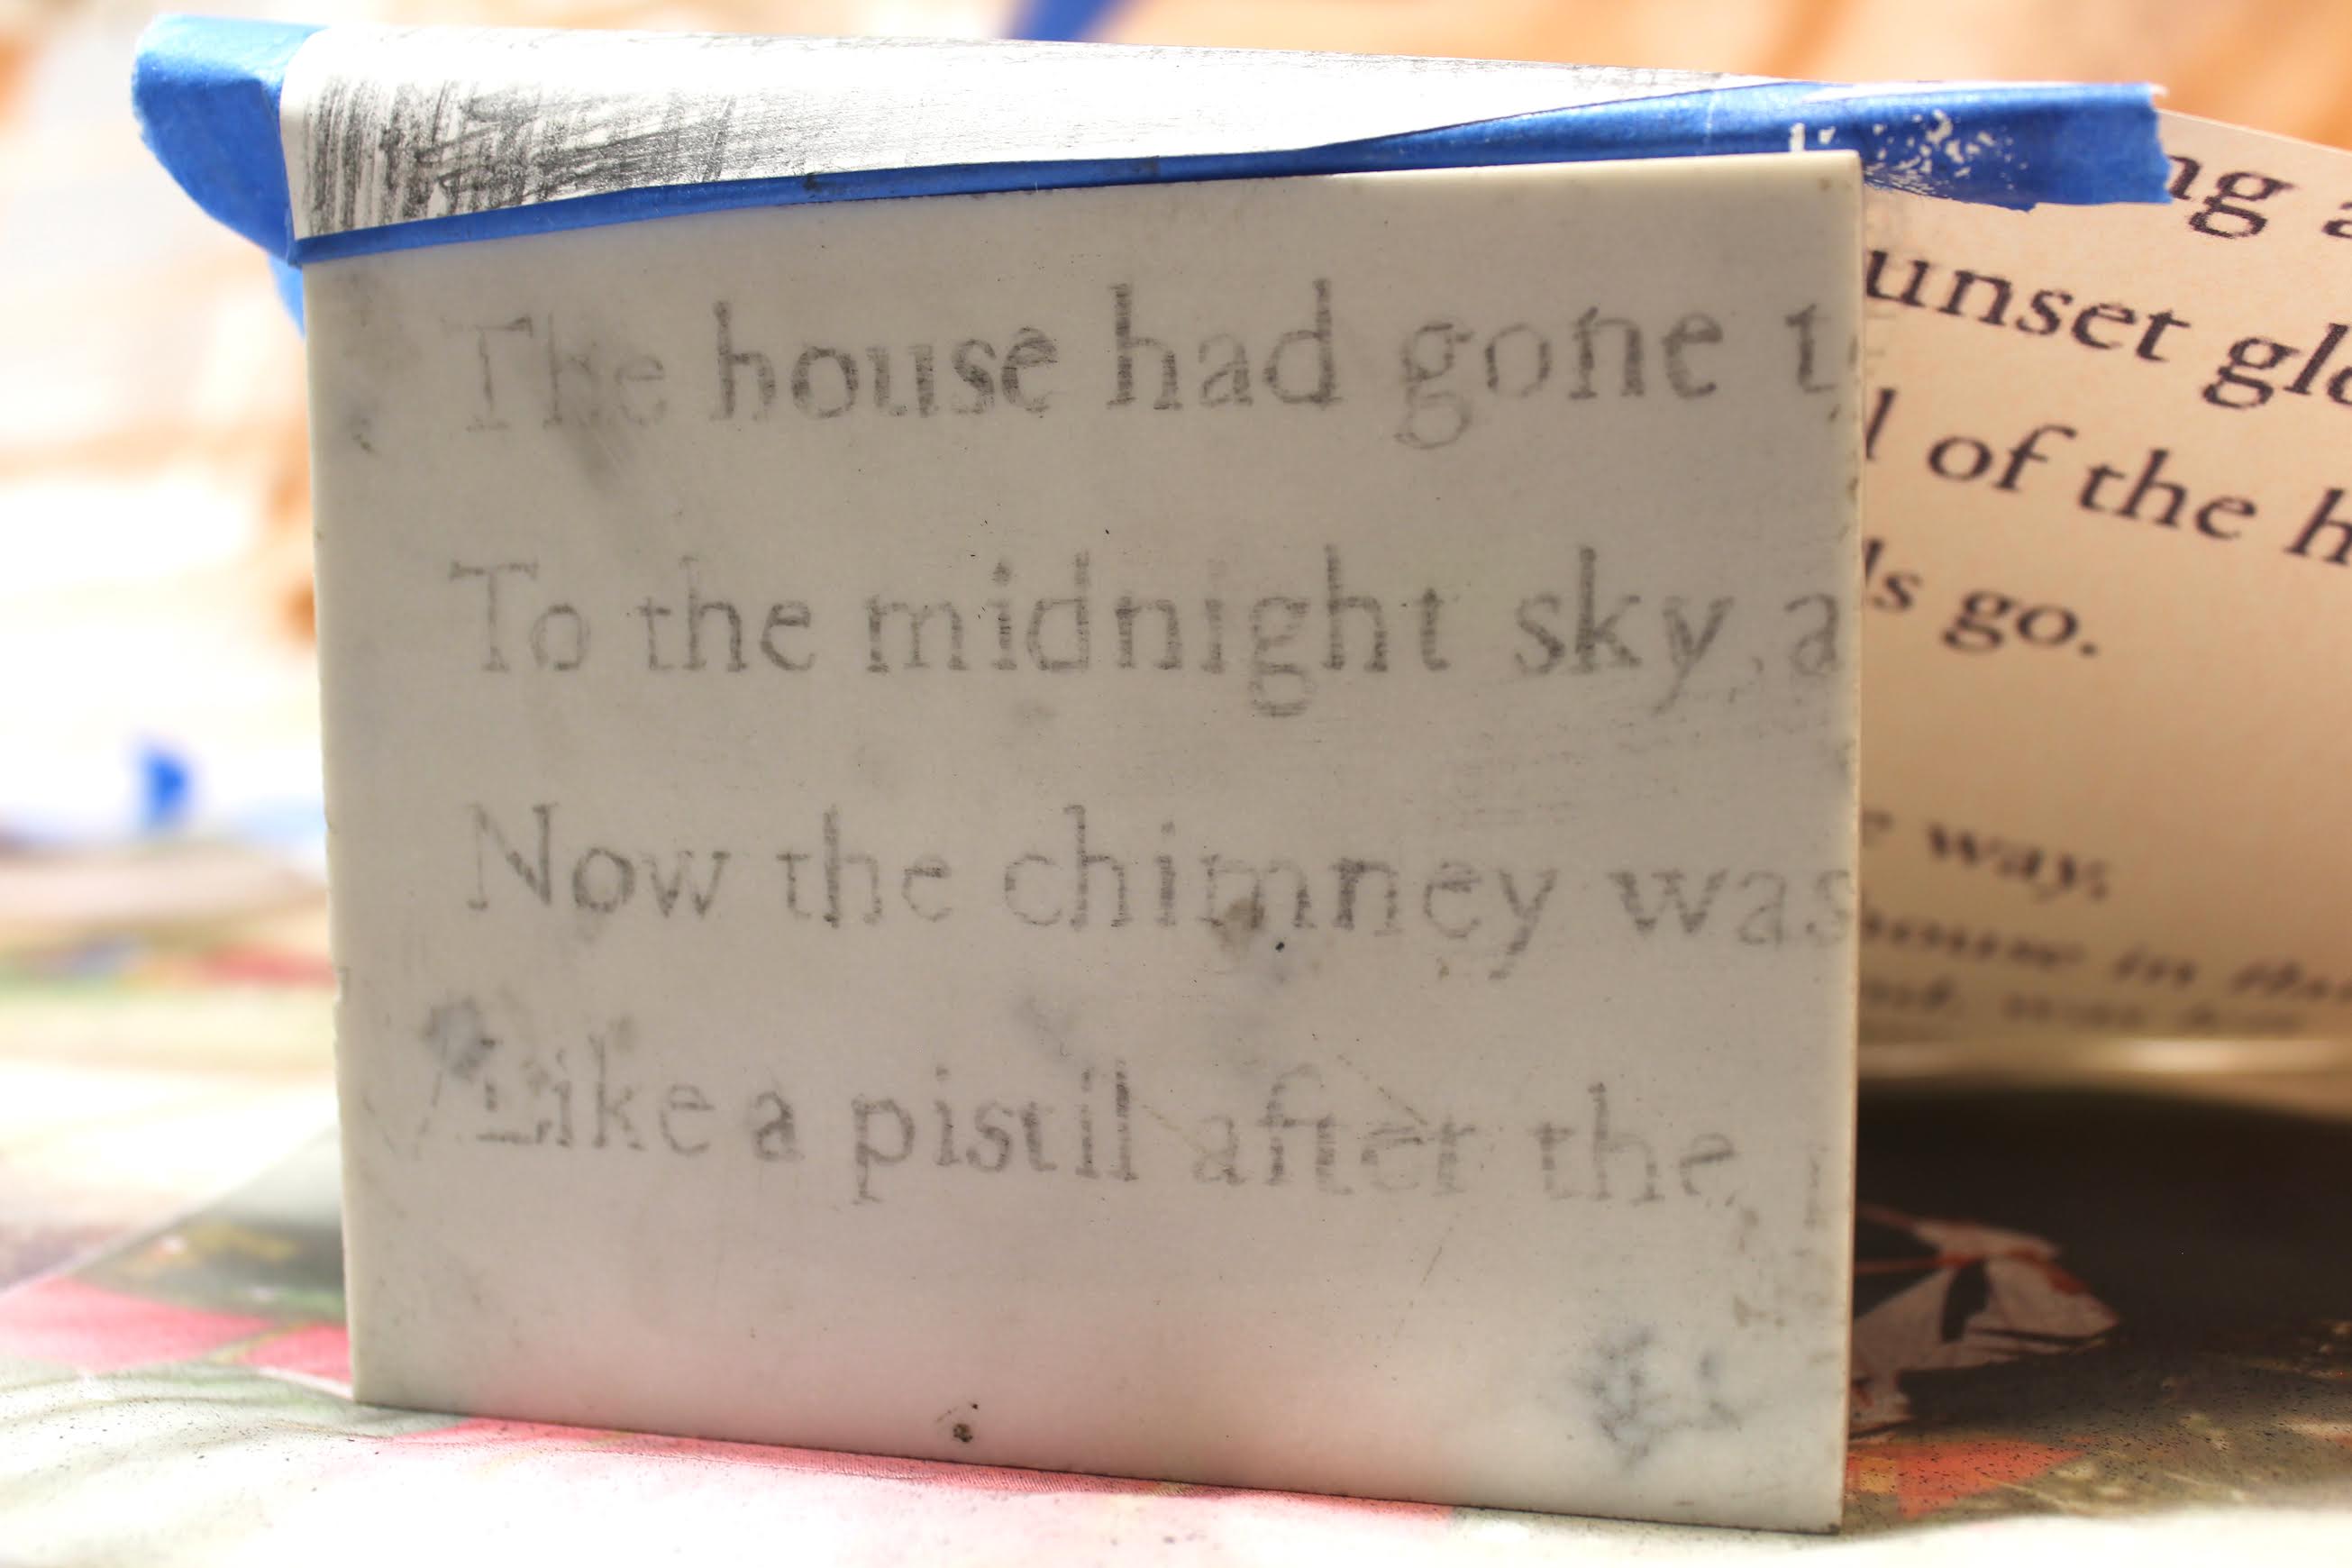 The house had gone t
To the midnight sky a
Now the chimney was
Like a pistil after the
ng a
unset glo
l of the h
ls go.
e way;
house in that